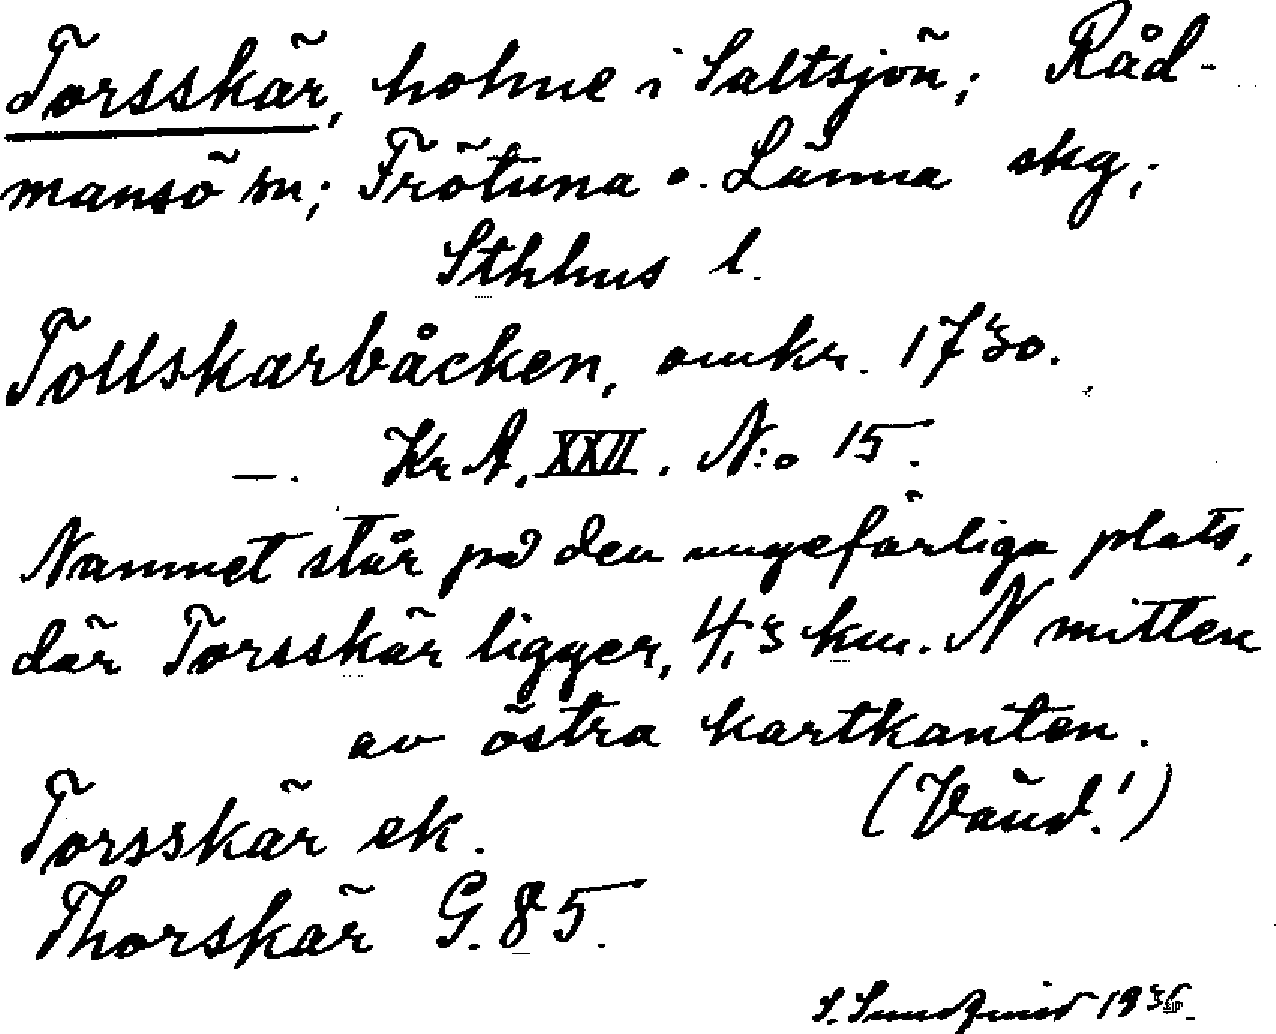 Torsskär, holme i Saltsjön; Råd-
mansö sn; Frötuna o. Länna skg;
Sthlms l.
Tollskarbåcken, omkr. 1730.
—. Kr A. XXII. N:o 15.
Namnet står på den ungefärliga plats,
där Torsskär ligger, 4,3 km. N mitten
av östra kartkanten.
(Vänd!)
Torsskär ek.
Thorskär G. 85.
S. 193